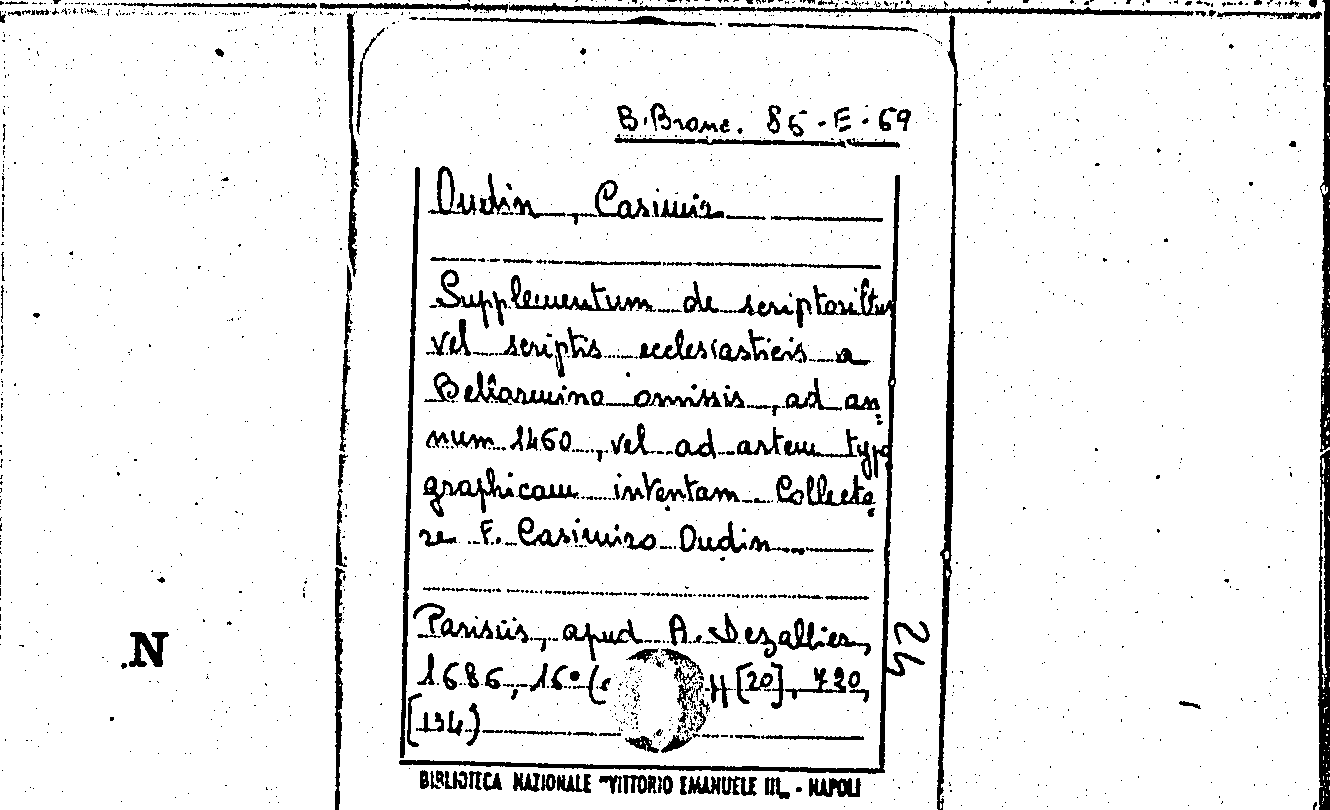 B. Branc. 86-E-69
Oudin, Casimir
Supplementum de scriptoribus
vel scriptis ecclesiasticis a
Bellarmino omissis, ad an=
num 1460, vel ad artem typo
graphicam inventam Collecto
re F. Casimiro Oudin
Parisiis, apud A. Dezallier,
1686, 16° ( [20], 720,
[134)
24
.N
BIBLIOTECA NAZIONALE "VITTORIO EMANUELE III„ - NAPOLI